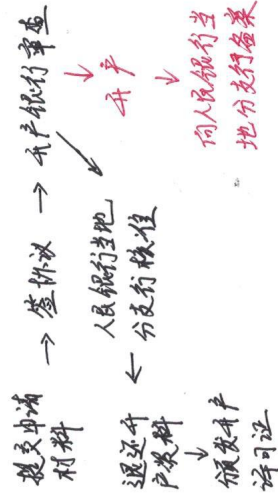 提交申请
材料
→ 签协议 → 开户银行审查
↓
开户
↓
向人民银行当
地分支行备案
人民银行当地
分支行核准
←
退还开
户资料
↓
颁发开户
许可证